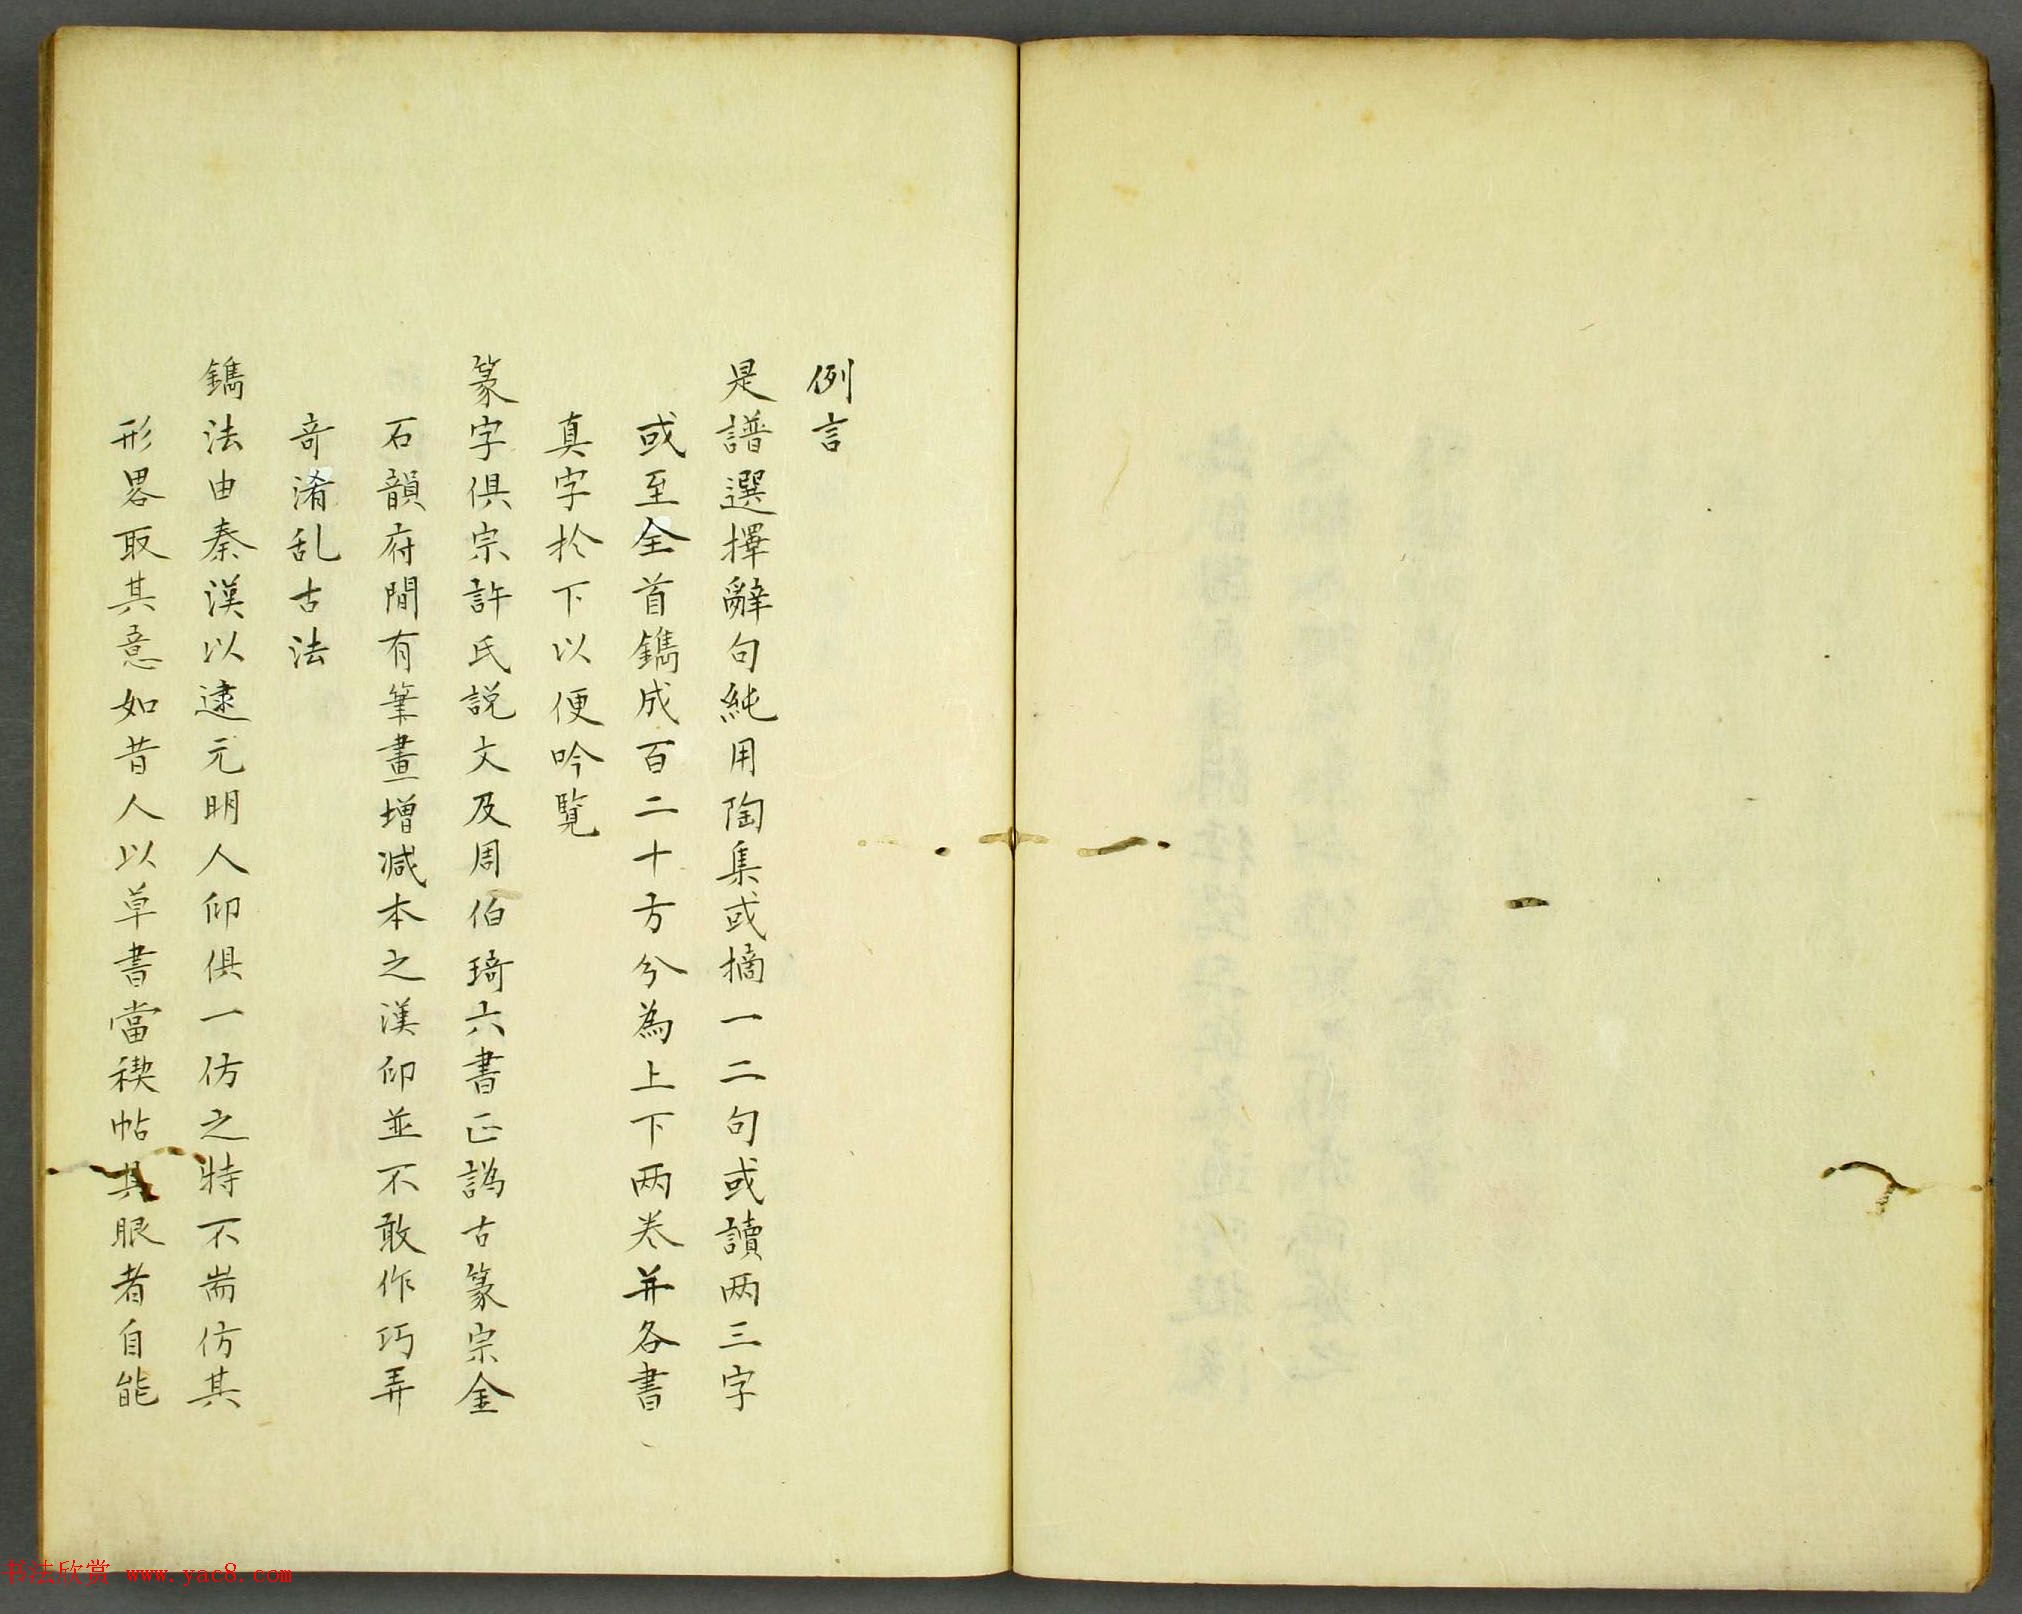 例言
是譜選擇辭句純用陶集或摘一二句或讀两三字
或至全首鐫成百二十方分為上下两卷并各書
真字於下以便吟覽
篆字俱宗許氏說文及周伯琦六書正譌古篆宗金
石韻府間有筆畫增減本之漢印並不敢作巧弄
奇淆乱古法
鐫法由秦漢以逮元明人印俱一仿之特不耑仿其
形畧取其意如昔人以草書當稧帖具眼者自能
书法欣赏 www.yac8.com